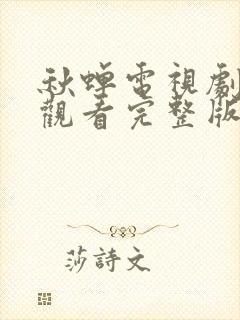 秋蟬電視劇
觀看完整版
莎詩文